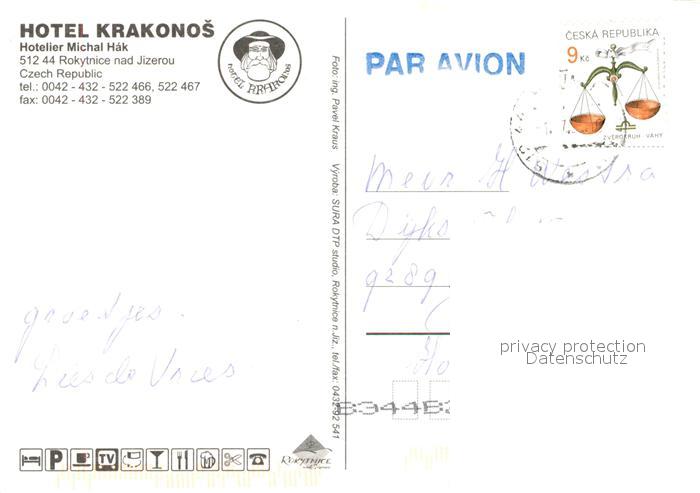 HOTEL KRAKONOŠ
Hotelier Michal Hák
512 44 Rokytnice nad Jizerou
Czech Republic
tel.: 0042 - 432 - 522 466, 522 467
fax: 0042 - 432 - 522 389
HOTEL KRAKONOŠ
groetjes.
TV
P
ROKYTNICE
Foto: ing. Pavel Kraus Výroba: SURA DTP studio, Rokytnice n.Jiz., tel./fax: 0432-92 541
PAR AVION
ČESKÁ REPUBLIKA
9 Kč
ZVĚROKRUH - VÁHY
Mevr H Westra
Dijks
9289
privacy protection
Datenschutz